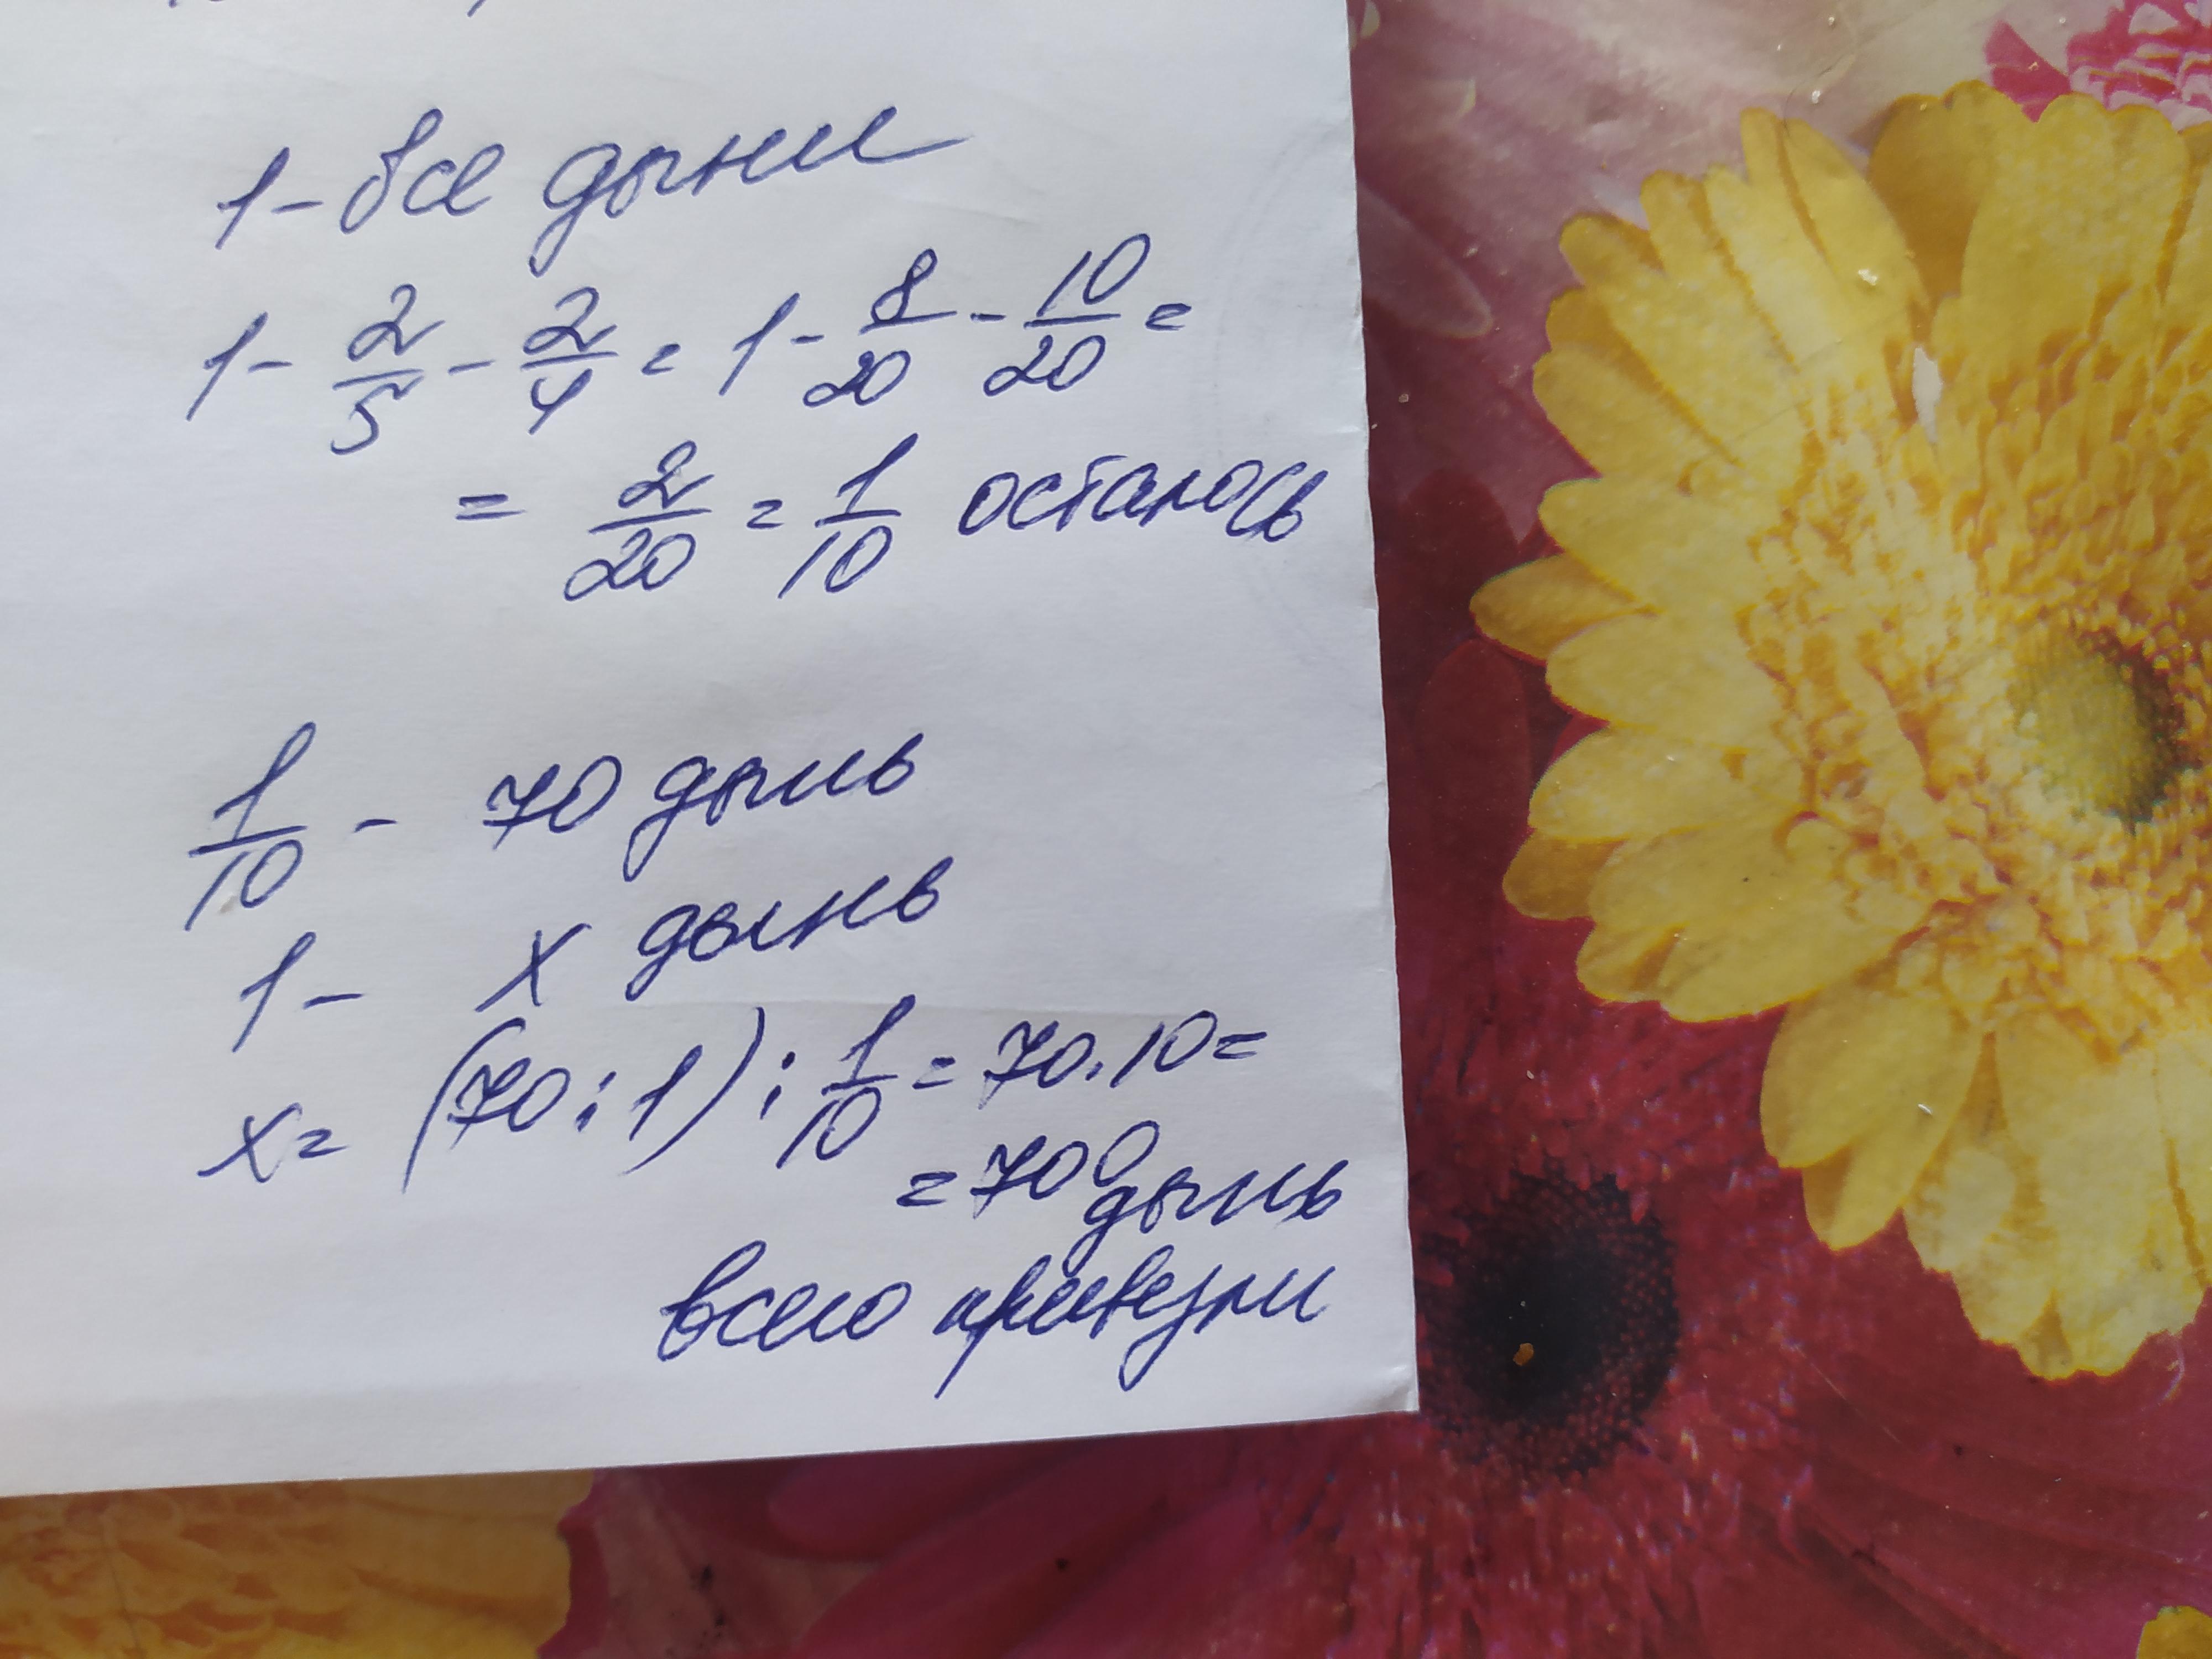 1 - все дыни
1 - 2/5 - 2/4 = 1 - 8/20 - 10/20 =
= 2/20 = 1/10 осталось
1/10 - 70 дынь
1 - x дынь
x = (70 : 1) : 1/10 = 70 · 10 =
= 700 дынь
всего привезли